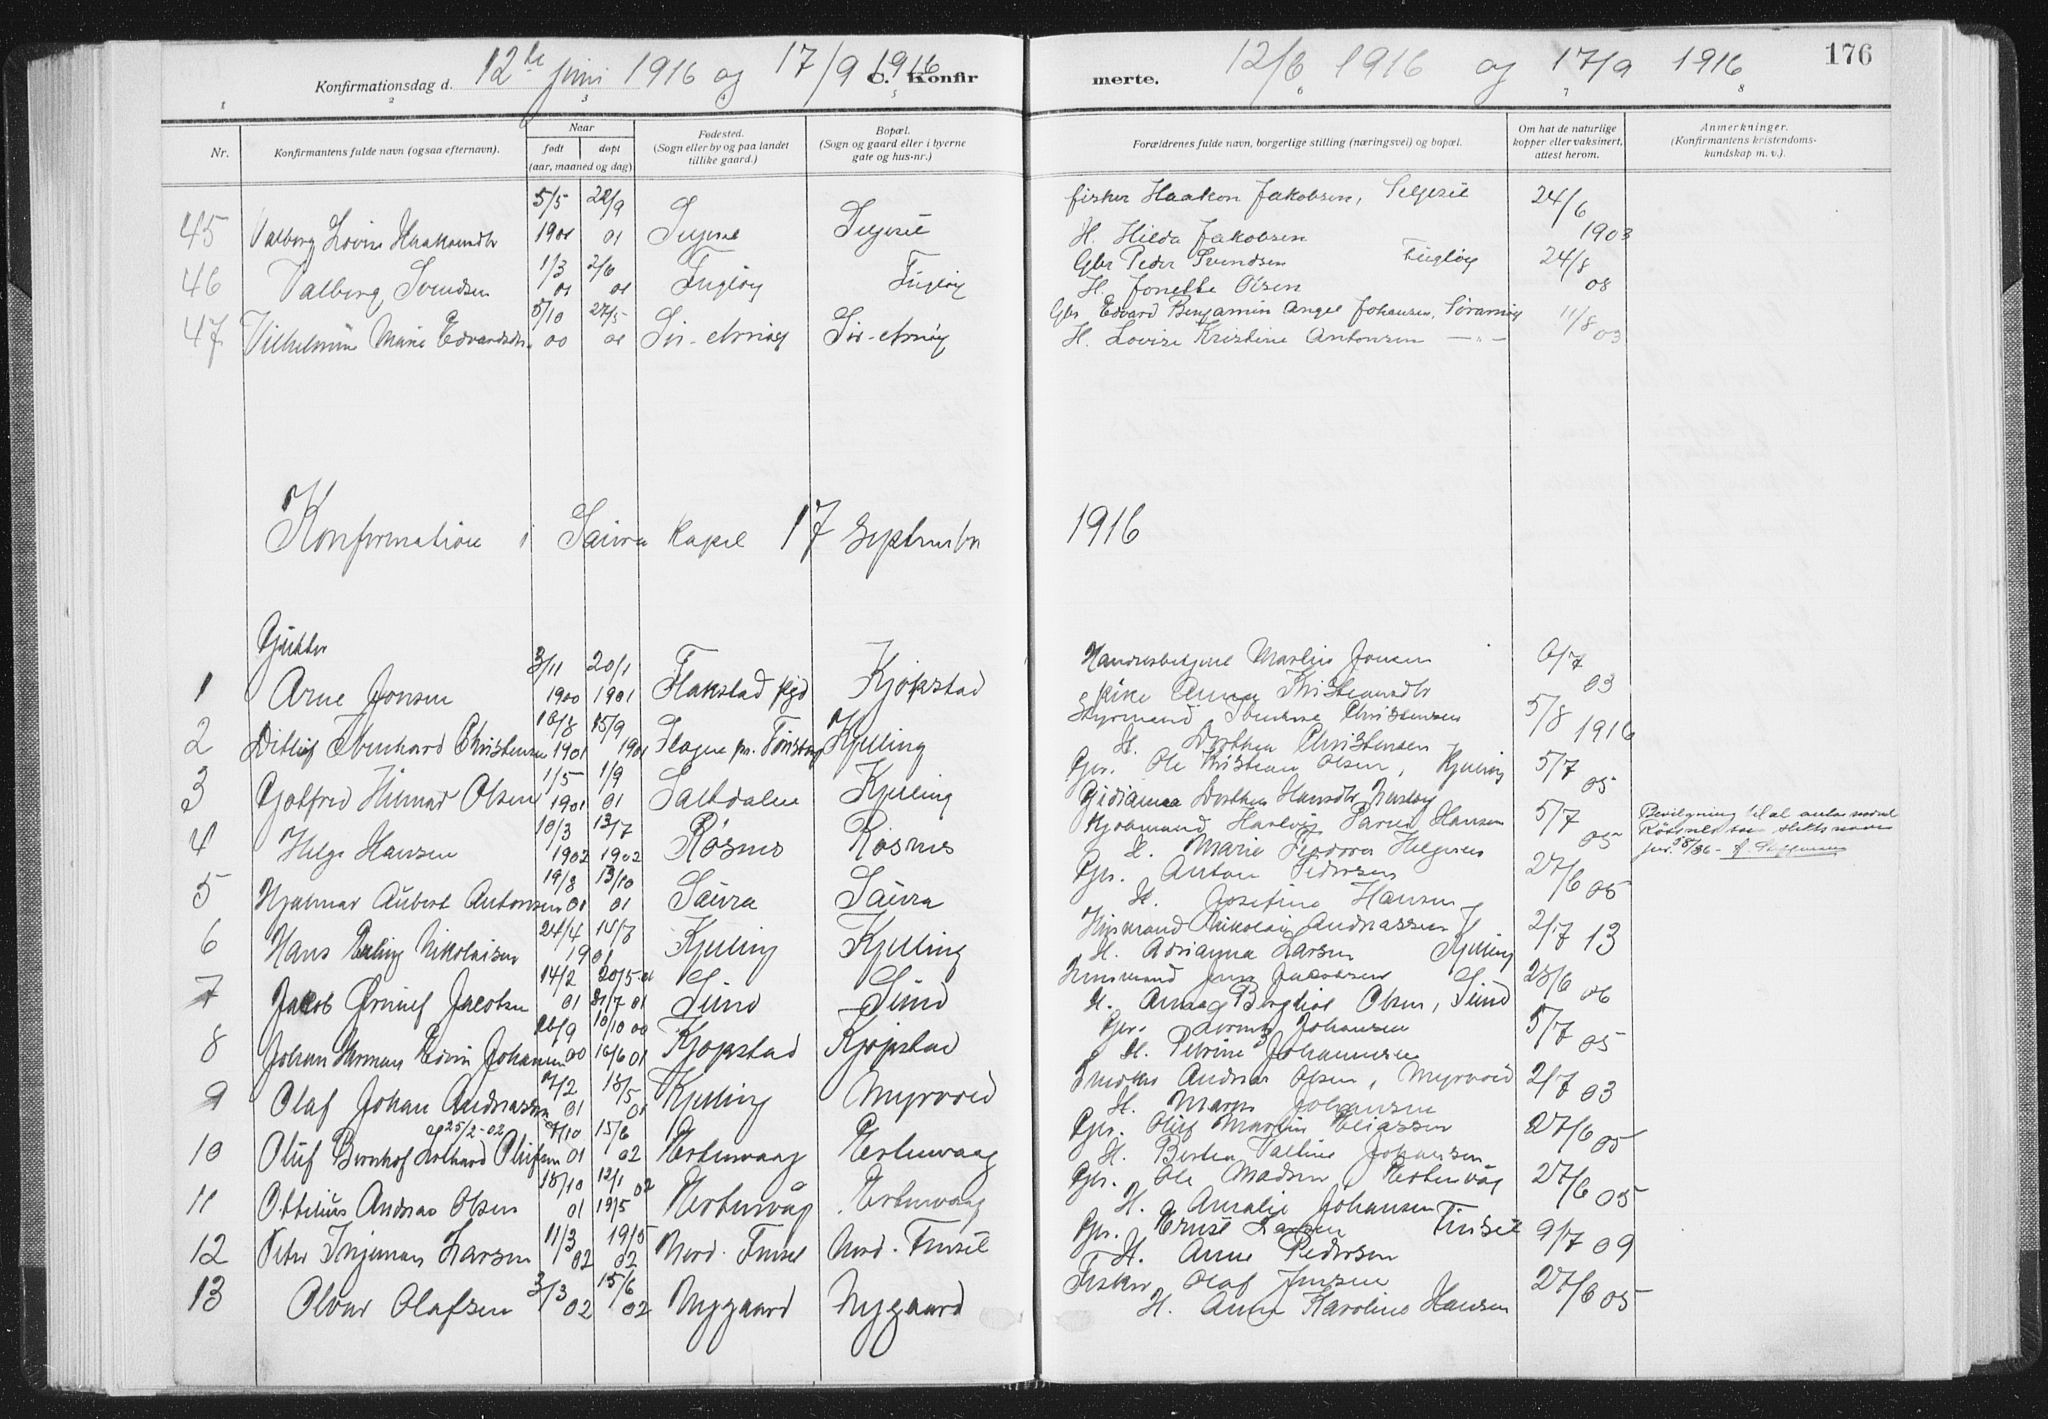 Konfirmationsdag d. 12te juni 1916 og 17/9 1916 C. Konfir merte. 12/6 1916 og 17/9 1916 176
1 2 3 4 5 6 7 8
Nr. Konfirmantens fulde navn (ogsaa efternavn). Naar født døpt (aar, maaned og dag) Fødested. (Sogn eller by og paa landet tillike gaard.) Bopæl. (Sogn og gaard eller i byerne gate og hus-nr.) Forældrenes fulde navn, borgerlige stilling (næringsvei) og bopæl. Om hat de naturlige kopper eller vaksinert, attest herom. Anmerkninger. (Konfirmantens kristendoms-kundskap m. v.).
5/5 fisker Haakon Jakobsen, Selgesil 24/6
45 Valborg Lovise Haakonsdtr 1901 01 H. Hilda Jakobsen 1903
1/3 2/6 Gbr Peder Svendsen Fugløy 24/8
46 Valborg Svendsen 01 01 Fugløy Fugløy H. Jonette Olsen 08
5/10 27/5 Gbr Edvard Benjamin Angel Johansen, Sørarnøy 11/8
47 Vilhelmine Marie Edvardsdtr. 00 01 Sør-Arnøy Sør-Arnøy H. Lovise Kristine Antonsen —"— 03
Konfirmation i Saura kapel 17 September 1916
Gutter
3/11 20/1 Handelsbetjent Martin Jonsen 6/7
1 Arne Jonsen 1900 1901 Flakstad pgd Kjøpstad Anna Kristiansdtr 03
16/8 15/9 Christensen 5/8
2 Ditlef Edvnhard Christensen 1901 1901 Kjelling H. Dorthea Christensen 1916
1/5 1/9 Gbr. Ole Kristian Olsen, Kjelling 5/7
3 Gotfred Hilmar Olsen 1901 01 Saltdalen Kjelling Dorthea Hansdtr 05
10/3 13/7 Hartvig Hansen 5/7 Bevilgning til at anta navnet
4 Helge Hansen 1902 1902 Røsnes Røsnes H. Marie Teodora Helgesen 05 Røsnes som slektsnavn
19/8 13/10 Gbr. Anton Pedersen 27/6
5 Hjalmar Aubert Antonsen 01 01 Saura Saura H. Josefine Hansen 05
24/4 14/7 Husmand Nikolai Andreassen 2/7
6 Hans Erling Nikolaisen 1901 Kjelling Kjelling H. Adrianna Larsen Kjelling 13
14/2 20/5-01 Husmand Jens Jakobsen 28/6
7 Jakob Jacobsen 01 21/7 01 Sund Sund H. Anna Bergliot Olsen, Sund 06
26/9 10/10 00 Gbr. Lorents Johansen 5/7
8 Johan Herman Edvin Johansen 00 16/6 01 Kjøpstad Kjøpstad H. Petrine Johannesen 05
7/2 18/5 Andreas Olsen, Myrvold 2/7
9 Olaf Johan Andreassen 01 01 Kjelling Myrvold H. Johansen 03
25/2-02 7/10 15/6 Gbr. Oluf Martin Eliassen 27/6
10 Oluf Bernhof Lothard Olufsen 01 02 Hestenvaag Hestenvaag H. Bertea Johansen 05
18/10 12/1 02 Gbr. Ole Madsen, Hestenvåg 27/6
11 Ottelius Andreas Olsen 01 19/5 Hestenvåg Hestenvaag H. Amalie Johansen 05
11/3 19/5 Gbr. Larsen 9/7
12 Peter Ingeman Larsen 02 02 Nord. Nord. H. Anne Pedersen 09
3/3 15/6 Fisker Olaf Jensen 27/6
13 Olvar Olafsen 02 02 Nygaard Nygaard H. Anna Karoline Hansen 05